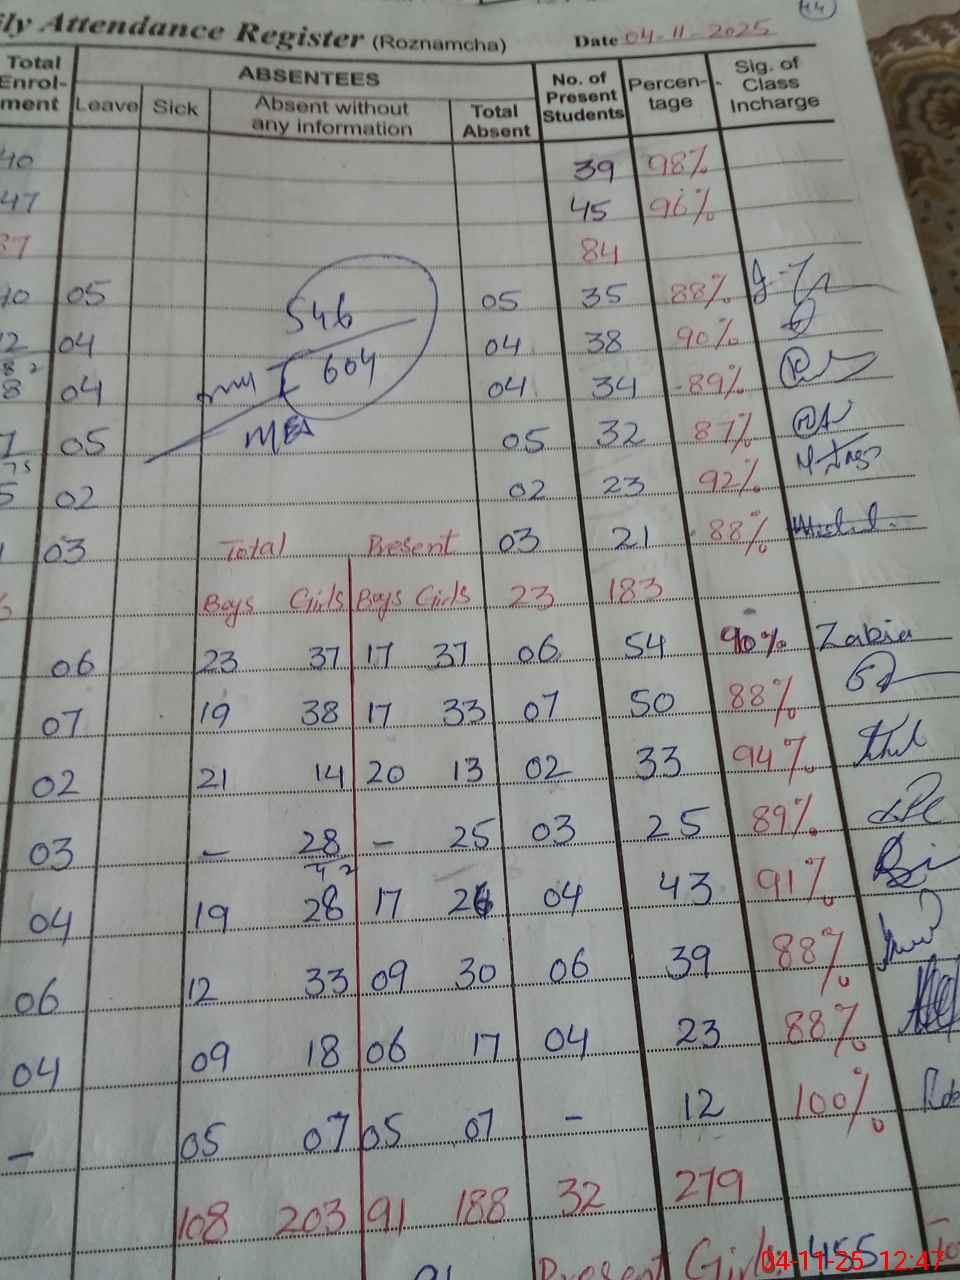 ily Attendance Register (Roznamcha) Date 04-11-2025
Total Enrol- ment ABSENTEES No. of Present Students Percen- tage Sig. of Class Incharge
Leave Sick Absent without any information Total Absent
40 39 98%
47 45 96%
37 84
40 05 05 35 88%
546
04 04 38 90%
604
8 04 04 34 89%
05 05 32 87%
5 02 02 23 92%
03 Total Present 03 21 88%
Boys Girls Boys Girls 23 183
06 23 37 17 37 06 54 90% Zabia
07 19 38 17 33 07 50 88%
02 21 14 20 13 02 33 94%
03 – 28 – 25 03 25 89%
04 19 28 17 26 04 43 91%
06 12 33 09 30 06 39 88%
04 09 18 06 17 04 23 88%
– 05 07 05 07 – 12 100%
108 203 91 188 32 279
91 Present Girls: 455
04-11-25 12:47